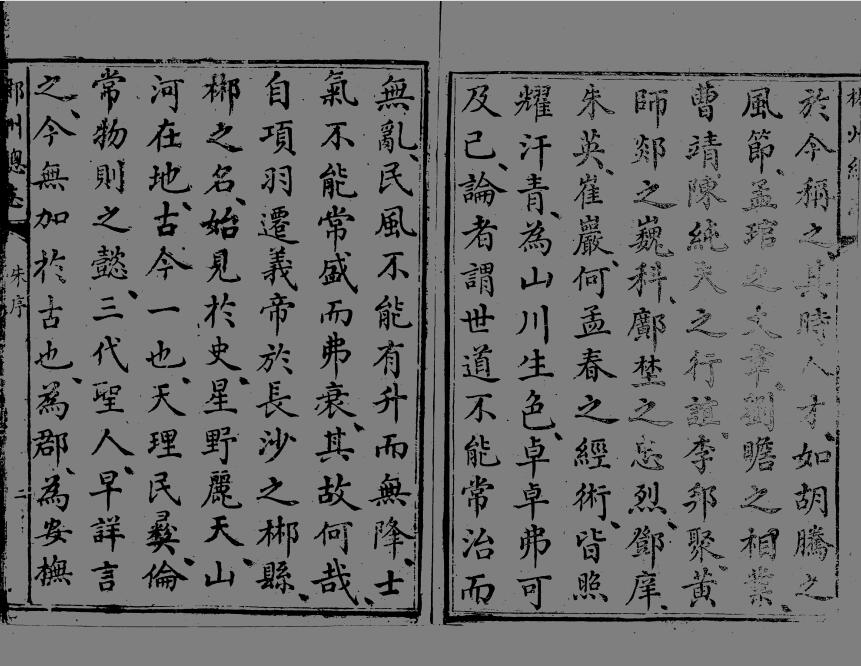 於今稱之其時人才如胡騰之
風節孟琯之文章劉瞻之相業
曹靖陳純夫之行誼李郛聚黃
師郯之巍科鄺埜之忠烈鄧庠
朱英崔巖何孟春之經術皆照
耀汗青為山川生色卓卓弗可
及已論者謂世道不能常治而
無亂民風不能有升而無降士
氣不能常盛而弗衰其故何哉
自項羽遷義帝於長沙之郴縣
郴之名始見於史星野麗天山
河在地古今一也天理民彝倫
常物則之懿三代聖人早詳言
之今無加於古也為郡為安橅
郴州總志
朱序
二